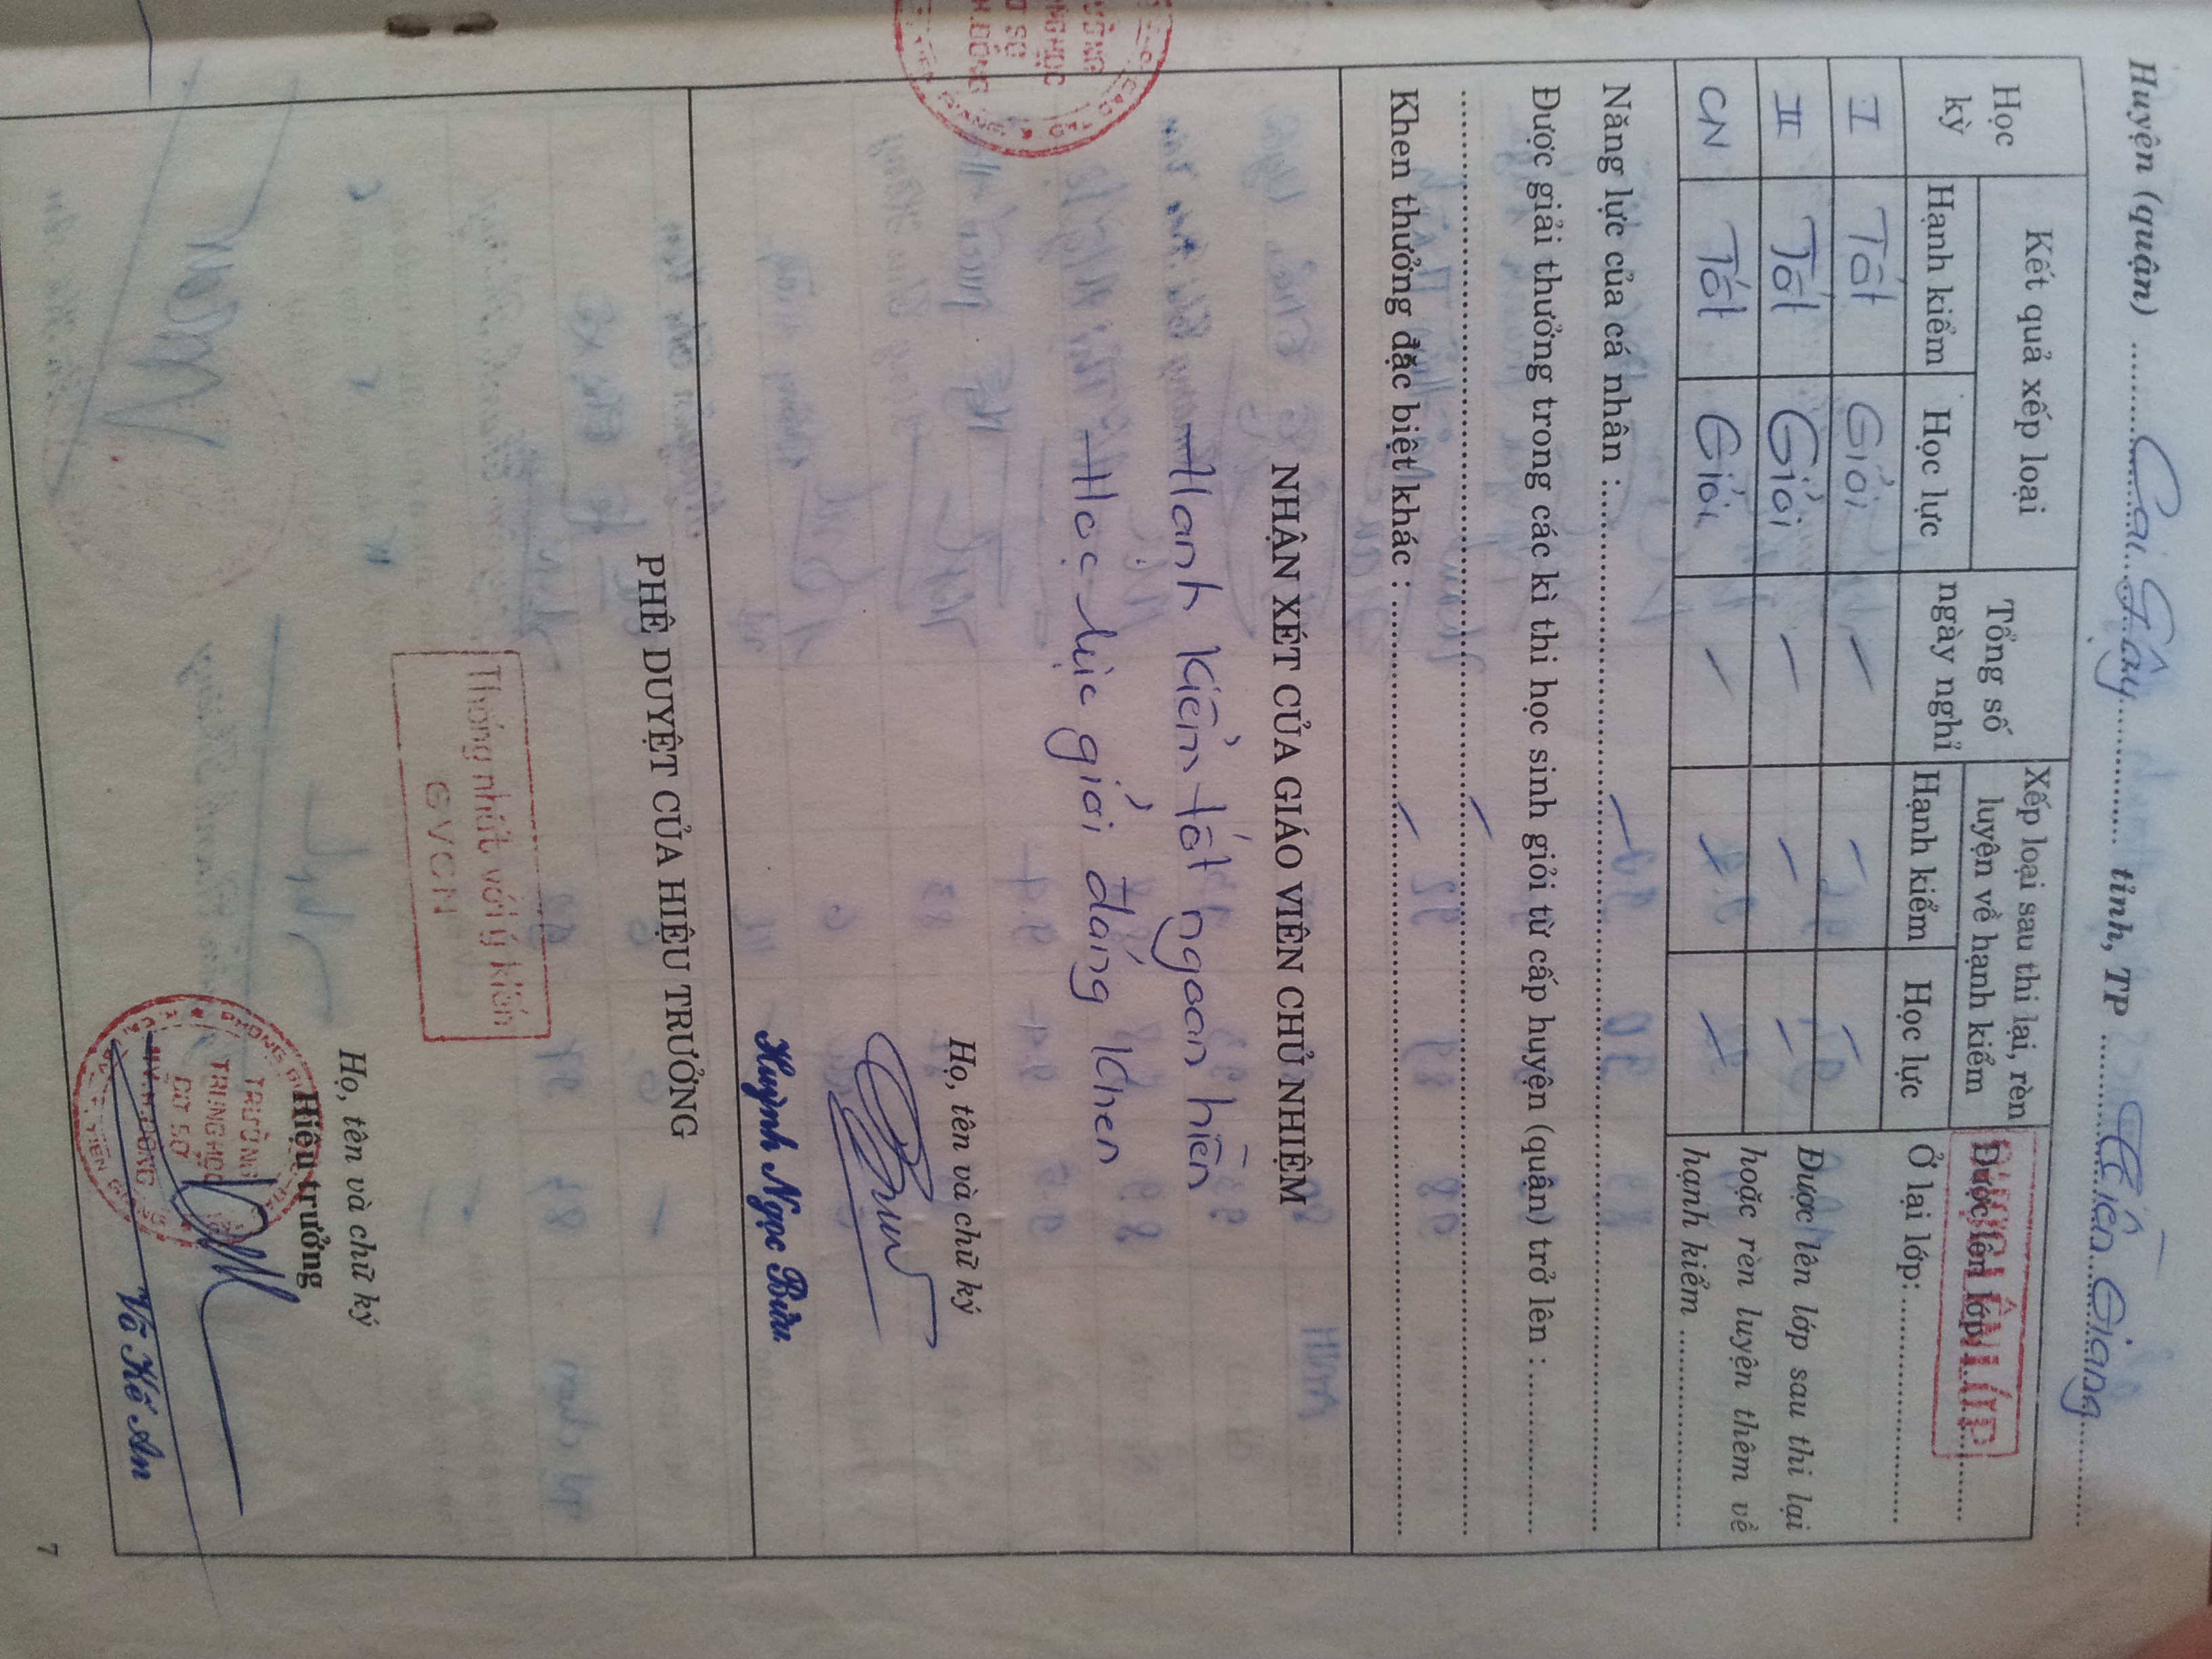 Huyện (quận) Cai Lậy tỉnh, TP Tiền Giang
Học kỳ
Kết quả xếp loại
Tổng số ngày nghỉ
Xếp loại sau thi lại, rèn luyện về hạnh kiểm
Được lên lớp:
ĐƯỢC LÊN LỚP
Hạnh kiểm
Học lực
Hạnh kiểm
Học lực
Ở lại lớp:
I Tốt Giỏi - - -
II Tốt Giỏi - - -
CN Tốt Giỏi - - -
Được lên lớp sau thi lại
hoặc rèn luyện thêm về
hạnh kiểm
Năng lực của cá nhân :
Được giải thưởng trong các kì thi học sinh giỏi từ cấp huyện (quận) trở lên :
Khen thưởng đặc biệt khác :
NHẬN XÉT CỦA GIÁO VIÊN CHỦ NHIỆM
Hạnh kiểm tốt ngoan hiền
Học lực giỏi đáng khen
Họ, tên và chữ ký
Huỳnh Ngọc Bửu
PHÊ DUYỆT CỦA HIỆU TRƯỞNG
Thống nhất với ý kiến
GVCN
Họ, tên và chữ ký
Hiệu trưởng
TRƯỜNG
TRUNG HỌC
CƠ SỞ
Võ Kế An
7